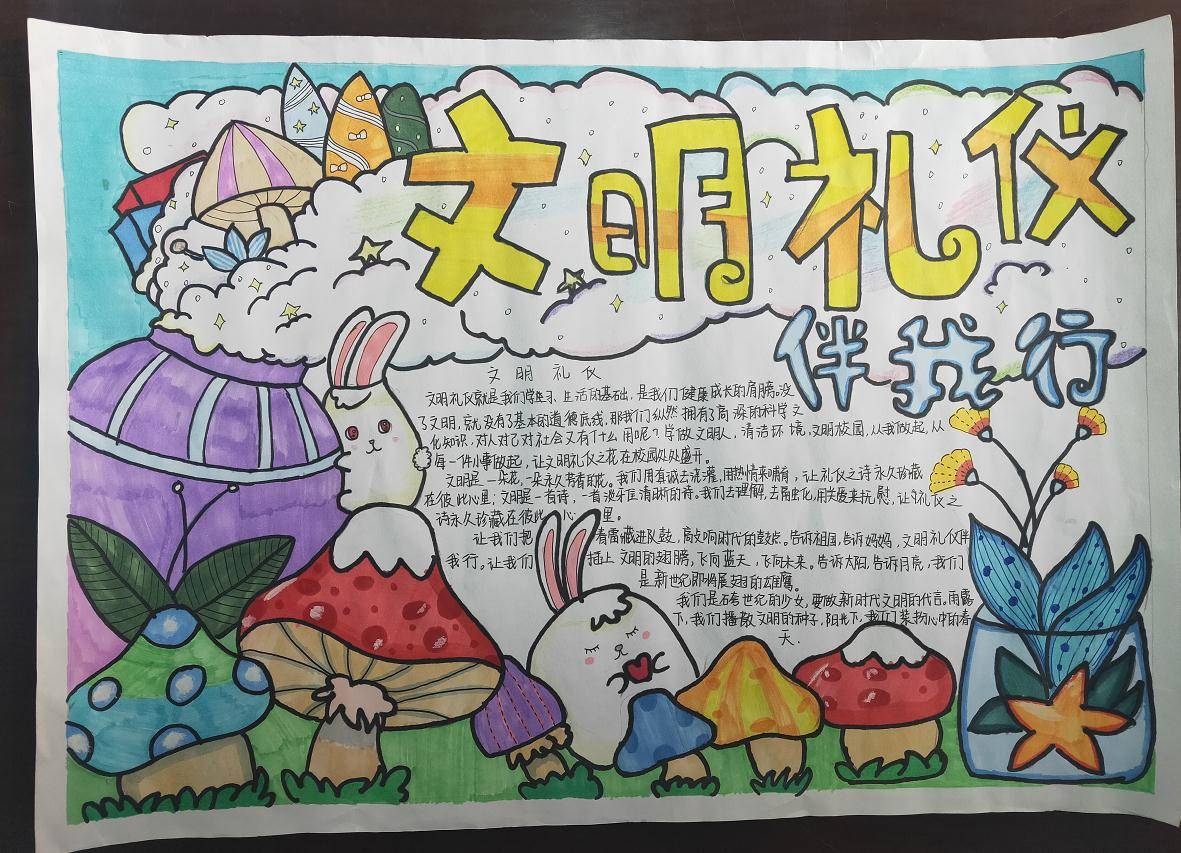 文明礼仪
伴我行
文明礼仪
文明礼仪就是我们学生学习、生活的基础,是我们健康成长的肩膀。没
了文明,就没有了基本的道德底线,那我们纵然拥有了高深的科学文
化知识,对人对己对社会又有什么用呢?学做文明人,清洁环境,文明校园,从我做起,从
每一件小事做起,让文明礼仪之花在校园处处盛开。
文明是一朵花,一朵永久芳香的花。我们用真诚去浇灌,用热情来哺育,让礼仪之诗永久珍藏
在彼此心里;文明是一首诗,一首淡牙且清晰的诗。我们去理解,去用关爱来抚慰,让礼仪之
诗永久珍藏在彼此心里。
让我们把 春雷藏进队鼓,高敲响时代的鼓点。告诉祖国,告诉妈妈,文明礼仪伴
我行。让我们 插上文明的翅膀,飞向蓝天,飞向未来。告诉太阳,告诉月亮,我们
是新世纪即将展翅的雄鹰。
我们是跨世纪的少女,要做新时代文明的代言。雨露
下,我们播散文明的种子,阳光下,我们紫扬心中的春
天.